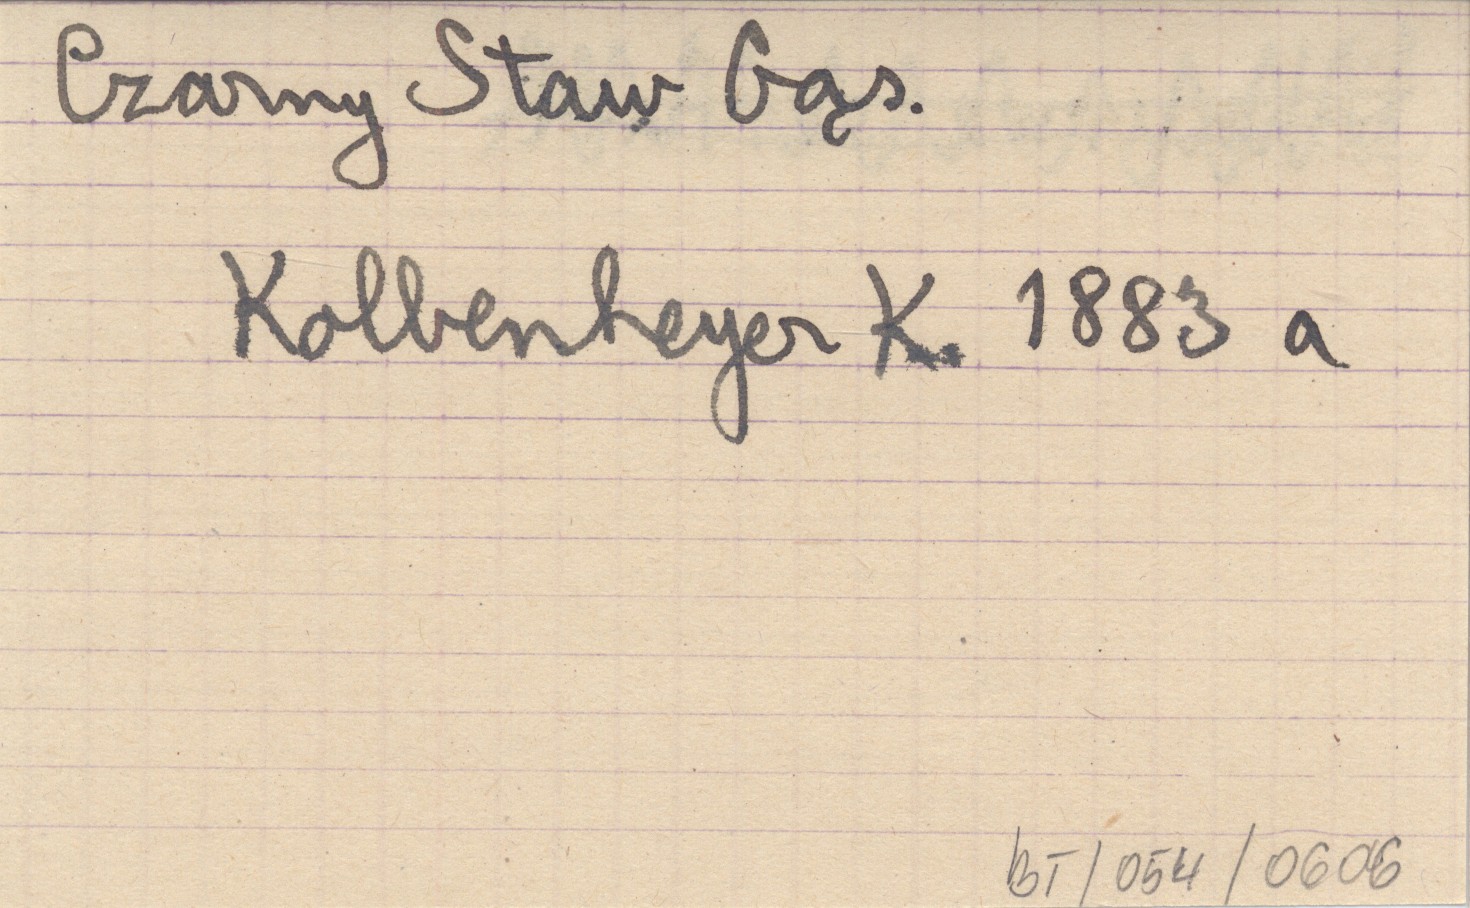 Czarny Staw Gąs.
Kolbenheyer K. 1883 a
BT/054/0606